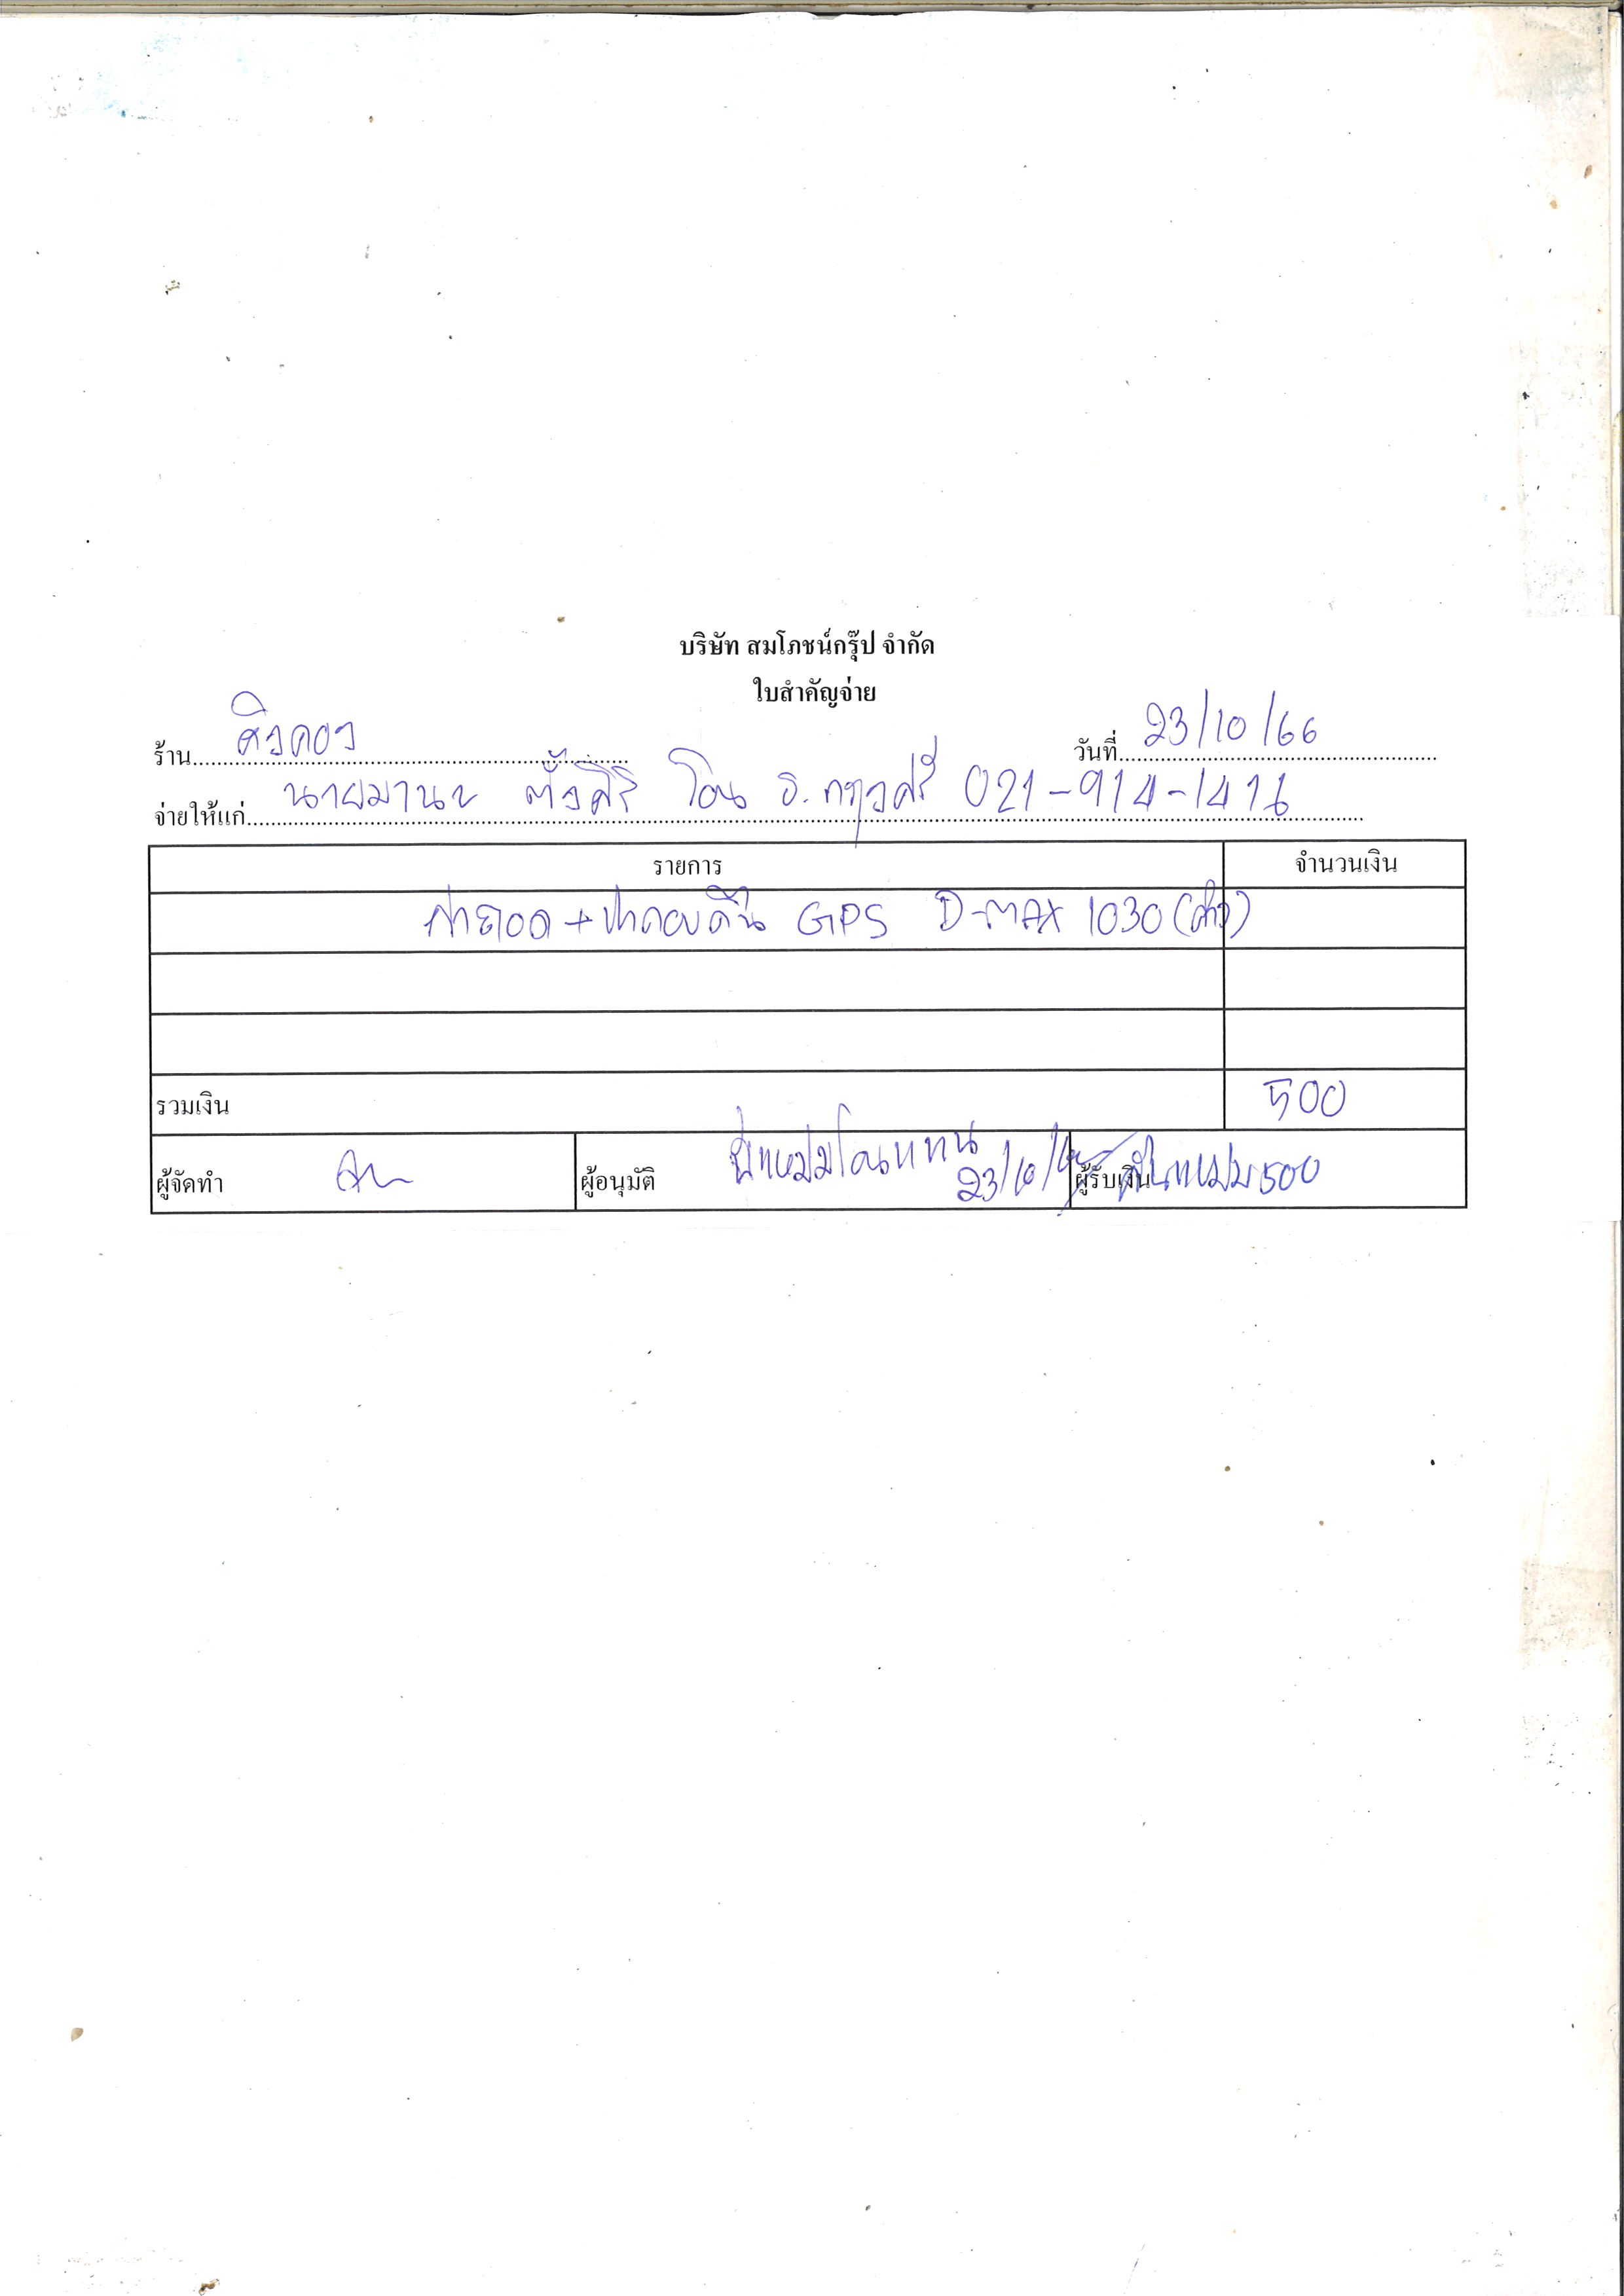 บริษัท สมโภชน์กรุ๊ป จำกัด
ใบสำคัญจ่าย
ร้าน คิงคอง วันที่ 23/10/66
จ่ายให้แก่ นายมานะ ตั้งศิริ โอน ธ.กรุงศรี 021-914-1416
รายการ จำนวนเงิน
ค่าถอด + นำกลับคืน GPS D-MAX 1030
รวมเงิน 500
ผู้จัดทำ ผู้อนุมัติ พี่แหม่มโอนแทน 23/10/ ผู้รับเงิน แหม่ม 500